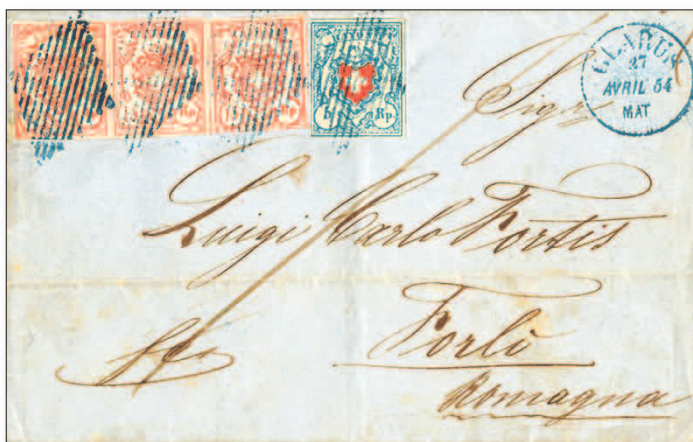 GLARUS
27
AVRIL 54
MAT
Rp
Sigr
Luigi Carlo Fortis
Forlì
Romagna